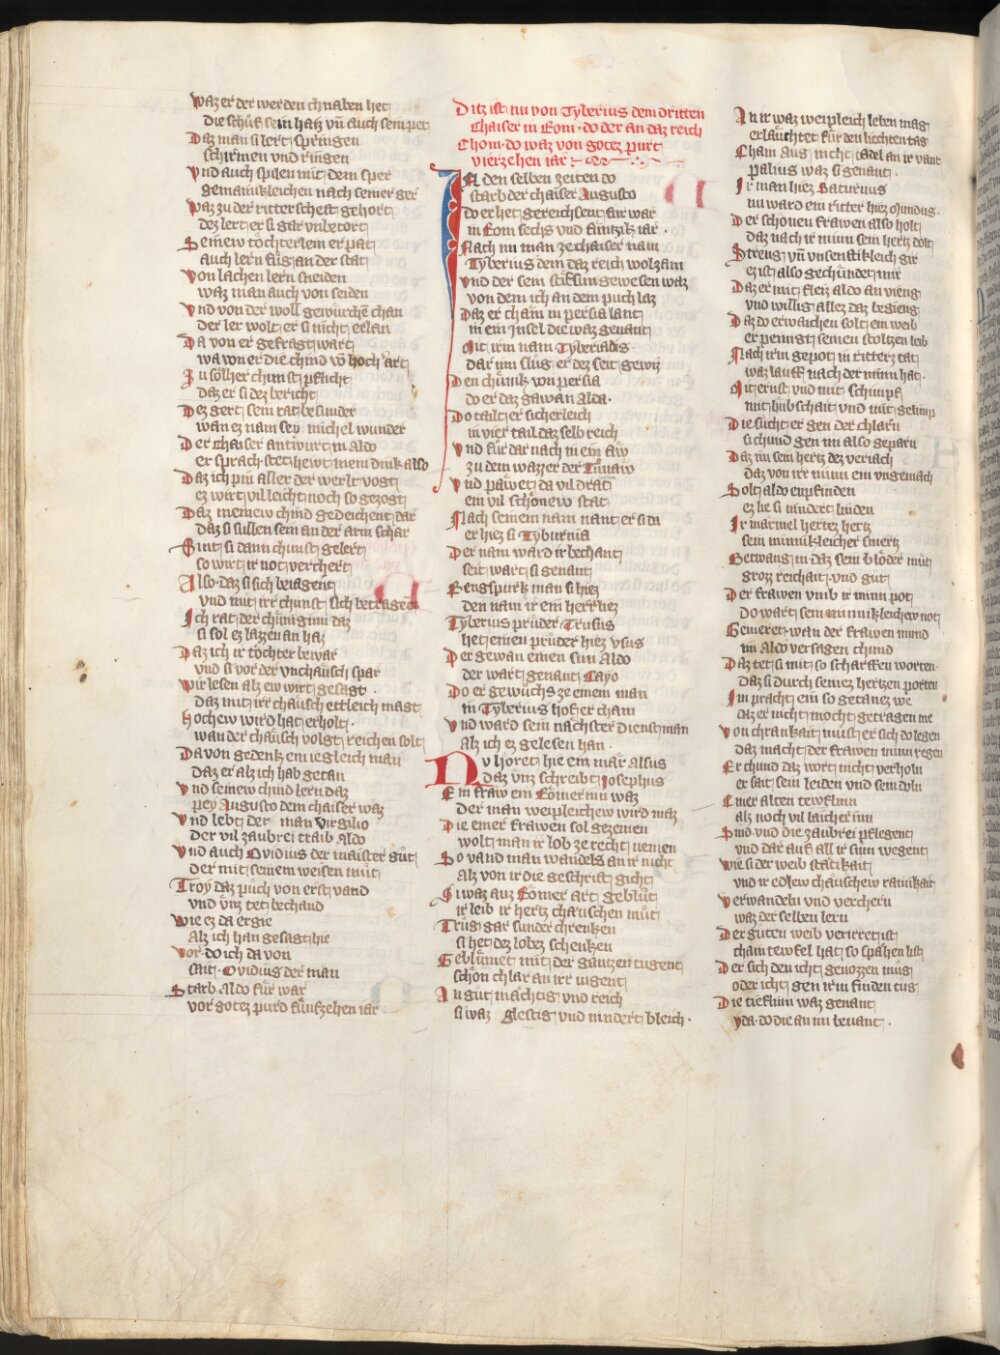 Waz er der werden chnaben het
Die schůf sein haiz vn̄ auch sein pet
Daz man si lert springen
schirmen vnd ringen
Vnd auch spilen mit dem sper
gemainkleichen nach seiner ger
Waz zu der ritterscheft gehort
dez lert er si gar vnbetort
Seinew töchterlein er pat
auch lern fůg an der stat
Von lachen lern sneiden
waz man auch von seiden
Vnd von der woll gewürche chan
der ler wolt er si nicht erlan
Da von er gefragt wart
wa von er die chind vō hoch art
Zu sölher chunst pflicht
daz er si dez bericht
Dez gert sein rat besunder
wan ez nam sey michel wunder
Der chaiser antwurt in aldo
er sprach stet hewt mein dink also
Daz ich pin aller der werlt vogt
ez wirt vil leicht noch so gezogt
Daz meinew chind gedeichent dar
daz si sullen sein an der arm schar
Sint si dann chunst gelert
so wirt ir not verchert
Also daz si sich beiagent
vnd mit irr chunst sich betragent
Ich rat der chüniginn daz
si sol ez lazen an haz
Daz ich ir töchter bewar
vnd si vor der vnchausch spar
Wir lesen alz ew wirt gesagt
daz mit irr chausch ettleich magt
Hochew wird hat erholt
wan der chausch volgt reichen solt
Da von gedenk ein iegleich man
daz er alz ich hab getan
Vnd seinew chind lern daz
pey Augusto dem chaiser waz
Vnd lebt der man Virgilio
der vil zaubrei traib aldo
Vnd auch Ovidius der maister gůt
der mit seinem weisen můt
Troy daz půch von erst vand
vnd vnz tet bechand
Wie ez da ergie
alz ich han gesagt hie
Vor do ich da von
sait Ovidius der man
Starb aldo für war
vor gotez purd fünfzehen iar
Ditz ist nu von Tyberius dem dritten
chaiser in Rom do der an daz reich
Chom do waz von gotez purt
vierzehen iar
In den selben zeiten do
starb der chaiser Augusto
do er het gereichsent für war
in Rom sechs vnd fünfzik iar
Nach im man ze chaiser nam
Tyberius dem daz reich wol zam
Vnd der sein stifsun gewesen waz
von dem ich an dem půch laz
Daz er cham in persia lant
in ein insel die waz genant
Mit irm nam Tyberiadis
dar inn slug er dez seit gewis
Den chünik von persia
do er daz gewan alda
Do tailt er sicherleich
in vier tail daz selb reich
Vnd für dar nach in ein aw
zu dem wazzer der Tůnaw
Vnd pawet da vil drat
ein vil schonew stat
Nach seinem nam nant er si da
er hiez si Tyburnia
Der nam ward ir bechant
seit wart si genant
Regspurk man si hiez
den nam ir ein herr hiez
Tyberius průder Trusus
het einen průder hiez vsus
Der gewan einen sun aldo
der wart genant Gayo
Do er gewůchs ze einem man
in Tyberius hof er cham
Vnd ward sein nächster dienstman
alz ich ez gelesen han
Nv horet hie ein mär alsus
daz vnz schreibt Josephus
Ein fraw ein Römerinn waz
der man weipleichew wird maz
Die einer frawen sol gezemen
wolt man ir lob ze recht nemen
So vand man wandels an ir nicht
alz von ir die geschrift gicht
Si waz auz Römer art geblůt
ir leib ir hertz chauschen můt
Trůg gar sunder chrenken
si het dez lobez schenken
Geblůmet mit der gantzen tugent
schön chlar an irr iugent
An gut mächtig vnd reich
si waz glestig vnd nindert bleich
An ir waz weipleich leben mag
erläuchtet für den liechten tag
Cham aug nicht tadel an ir vant
paulus waz si genant
Ir man hiez Saturnus
nu ward ein ritter hiez Mundus
Der schonen frawen also holt
daz nach ir minn sein hertz dolt
Streng vn̄ vnsenftikleich gir
ez ist also gechündet mir
Daz er mit fleiz aldo an vieng
vnd willig allez daz begieng
Daz do erwaichen solt ein weib
er peinigt seinen stoltzen leib
Nach irm gepot in ritterz tat
waz lauff nach der minn hat
Mit ernst vnd mit schimpf
mit hübschait vnd mit gelimp
Die sücht er gen der chlarn
si chund gen im also geparn
Daz im sein hertz dez veriach
daz von irr minn ein vngemach
Solt aldo enpfinden
ez lie si nindert linden
Ir marmel hertez hertz
sein minnikleicher smertz
Betwang in daz sein blöder můt
groz reichait vnd gut
Der frawen vmb ir minn pot
do wart sein minnikleichew not
Gemeret wan der frawen mund
im aldo versagen chund
Daz tet si mit so scharffen worten
daz si durch seinez hertzen porten
Im pracht ein so getanez we
daz er nicht mocht getragen me
Von chrankait můst er sich do legen
daz macht der frawen minn regen
Er chund daz wort nicht verholn
er sait sein leiden vnd sein doln
Einer alten tewflinn
alz noch vil laicherinn
Sind vnd die zaubrei pflegent
vnd dar auf all ir sinn wegent
Wie si der weib stätikait
vnd ir edlew chauschew rainikait
Verwandeln vnd verchern
waz der selben lern
Der guten weib verirret ist
cham tewfel hat so spähen list
Der sich den icht genozzen mug
oder icht gen irm finden tug
Die tieflinn waz genant
yda do die an im bevant